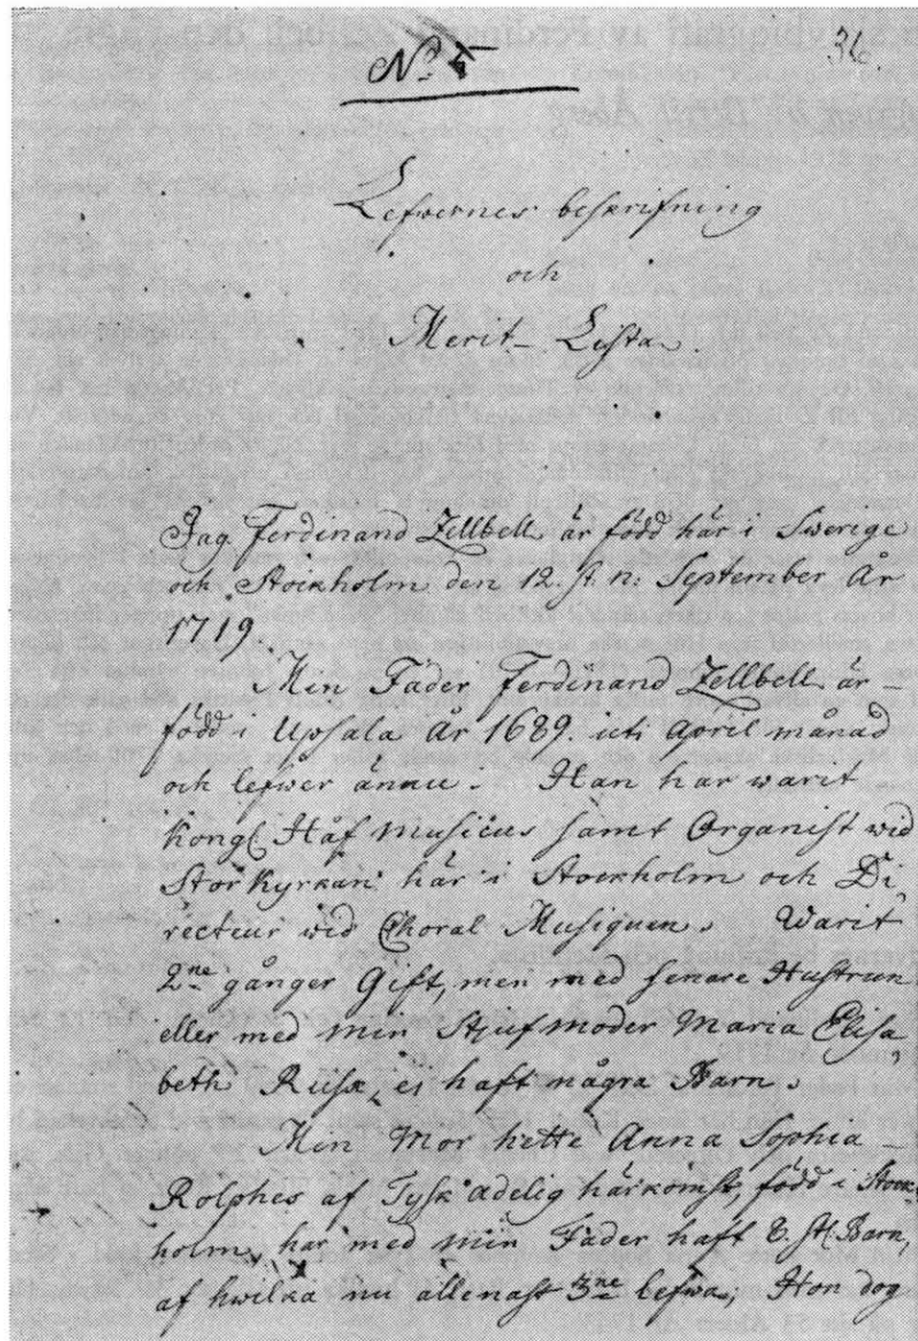 No 5
36.
Lefwernes beskrifning
och
Merit-Lista.
Jag Ferdinand Zellbell är född här i Swerige
och Stockholm den 12. st. n: September År
1719.
Min Fader Ferdinand Zellbell är
född i Upsala År 1689. uti April månad
och lefwer ännu. Han har warit
Kongl Håf Musicus samt Organist wid
Stor Kyrkan här i Stockholm och Di,
recteur wid Choral Musiquen. Warit
2ne gånger Gift, men med senare Hustrun
eller med min Stjufmoder Maria Elisa,
beth ej haft några Barn.
Min Mor hette Anna Sophia
Rolphes af Tysk adelig härkomst, född i Stock,
holm, har med min Fader haft 8. st. Barn,
af hwilka nu allenast 3ne lefwa; Hon dog